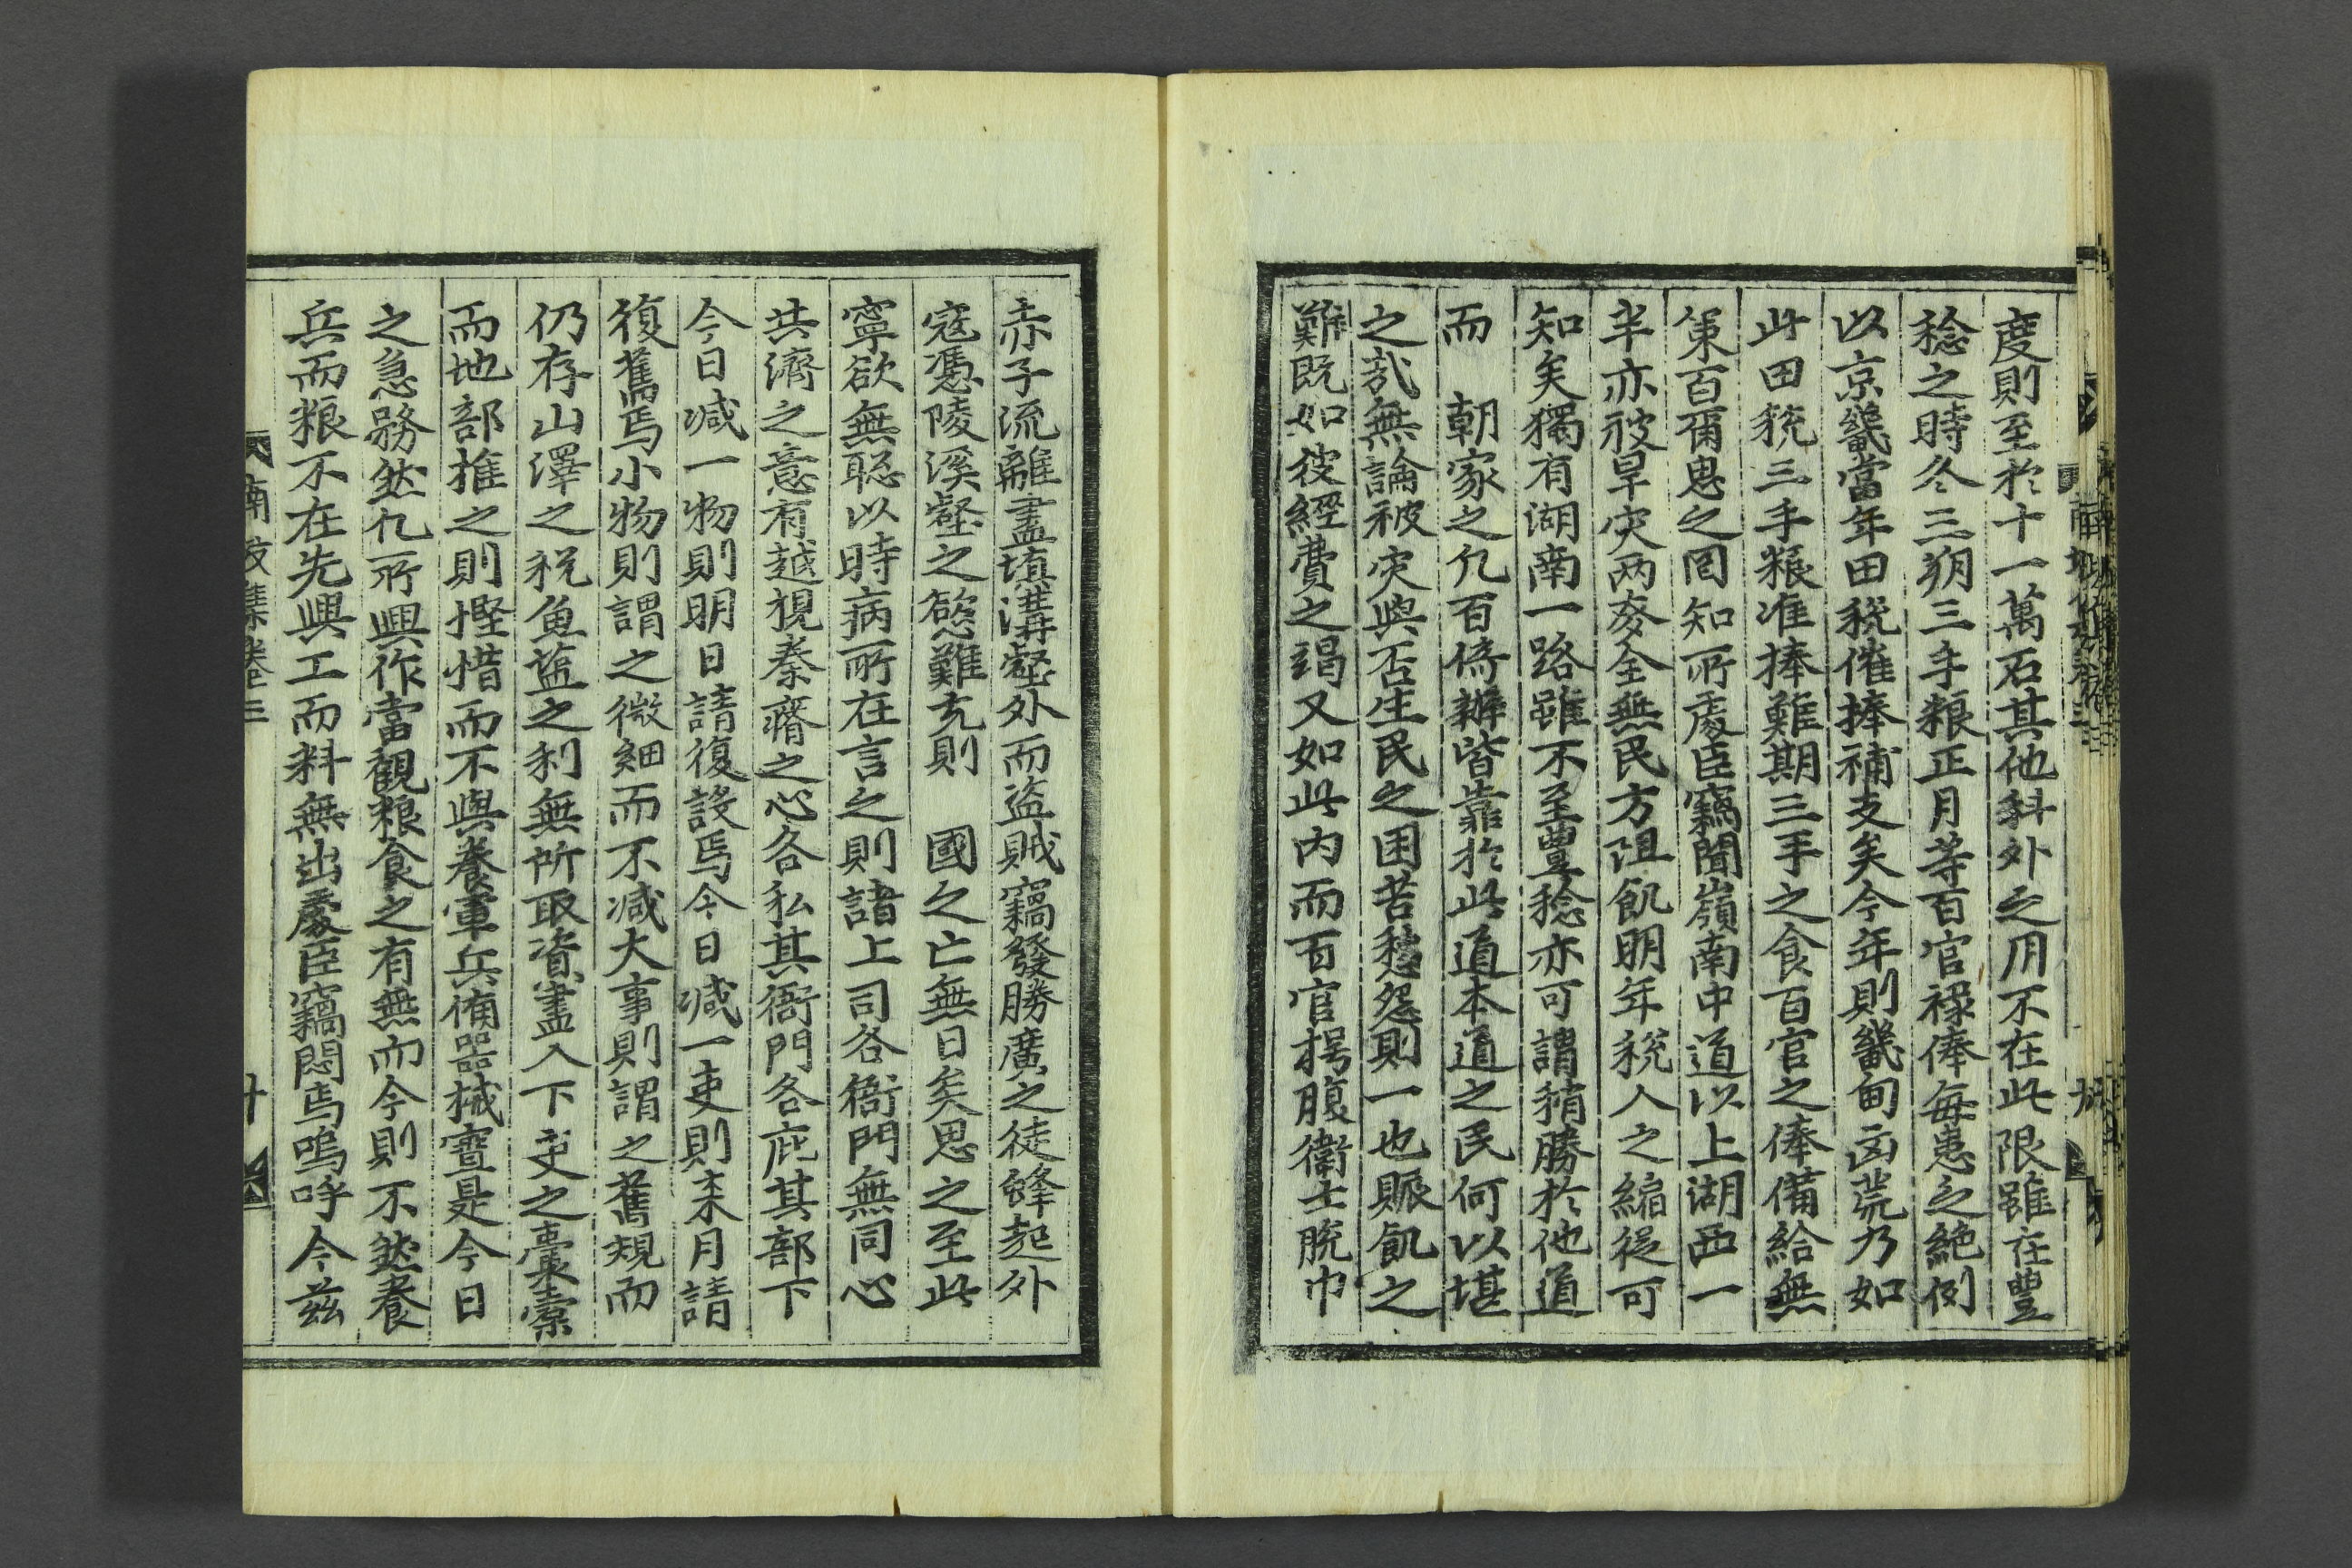 度則至於十一萬石其他科外之用不在此限雖在豊
稔之時冬三朔三手粮正月等百官祿俸每患之絶例
以京畿當年田稅催捧補支矣今年則畿甸凶荒乃如
此田稅三手粮准捧難期三手之食百官之俸備給無
策百爾思之罔知所處臣竊聞嶺南中道以上湖西一
半亦被旱灾兩麥全無民方阻飢明年稅入之縮從可
知矣獨有湖南一路雖不至豊稔亦可謂稍勝於他道
而 朝家之凡百倚辦皆靠於此道本道之民何以堪
之哉無論被灾與否生民之困苦愁怨則一也賑飢之
難既如彼經費之竭又如此内而百官枵腹衛士脫巾
赤子流離盡塡溝壑外而盜賊竊發勝廣之徒蜂起外
寇憑陵溪壑之慾難充則 國之亡無日矣思之至此
寧欲無聡以時病所在言之則諸上司各衙門無同心
共濟之意有越視秦瘠之心各私其衙門各庇其部下
今日減一物則明日請復設焉今日減一吏則來月請
復舊焉小物則謂之微細而不減大事則謂之舊規而
仍存山澤之稅魚塩之利無所取資盡入下吏之囊橐
而地部推之則慳惜而不與養軍兵備器械寔是今日
之急務然凡所興作當觀粮食之有無而今則不然養
兵而粮不在先興工而料無出處臣竊悶焉嗚呼今玆
南坡集卷三
十